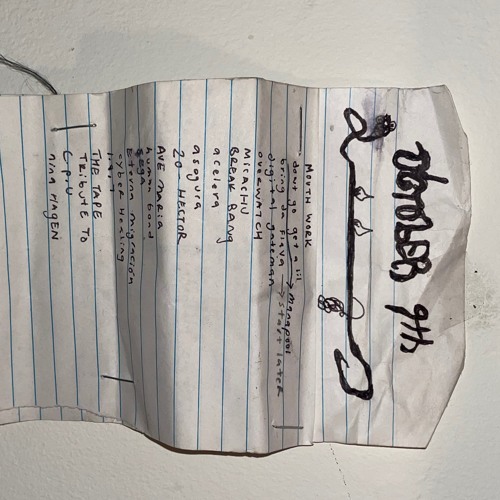 MOUTH WORK
dont go get a lil → manapool
bring da flava → start later
digital gateman
overwatch
MICACHU
BREAK BANG
acelera
asogura
20 HECTOR
AVE MARIA
human bond
Eterna migración
cyber healing
THE TAPE
TRIBUTE TO
G.P.U
NINA HAGEN